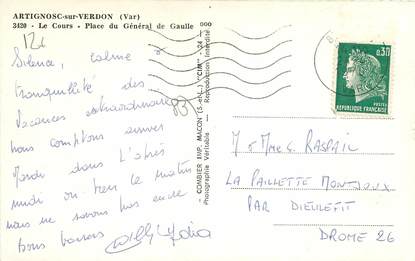 ARTIGNOSC-sur-VERDON (Var)
3420 - Le Cours - Place du Général de Gaulle
12h
Silence, calme
tranquilité des
vacances extraordinaires
nous comptons arriver
Mardi dans l'après
midi ou bien le matin
nous ne savons pas encore
Bons baisers
COMBIER IMP. MACON (S.-et-L.) "CIM"
Photographie Véritable - Reproduction Interdite
0,30
POSTES
REPUBLIQUE FRANÇAISE
M et Mme G. RASPAIL
LA PAILLETTE MONTJOUX
PAR DIEULEFIT
DROME 26